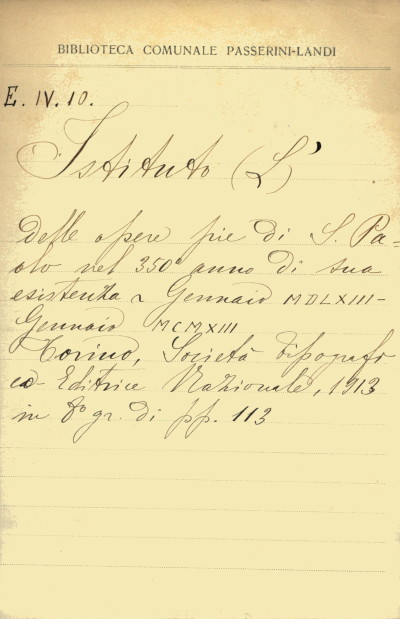 BIBLIOTECA COMUNALE PASSERINI-LANDI
E. IV. 10.
Istituto (L')
delle opere pie di S. Pa=
olo nel 350° anno di sua
esistenza Gennaio MDLXIII-
Gennaio MCMXIII
Torino, Società Tipografi
co-Editrice Nazionale, 1913
in 8° gr. di pp. 113